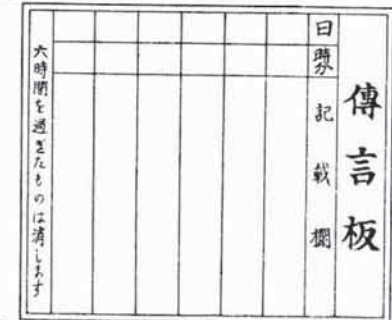 傳言板
日
時分
記載欄
六時間を過ぎたものは消します